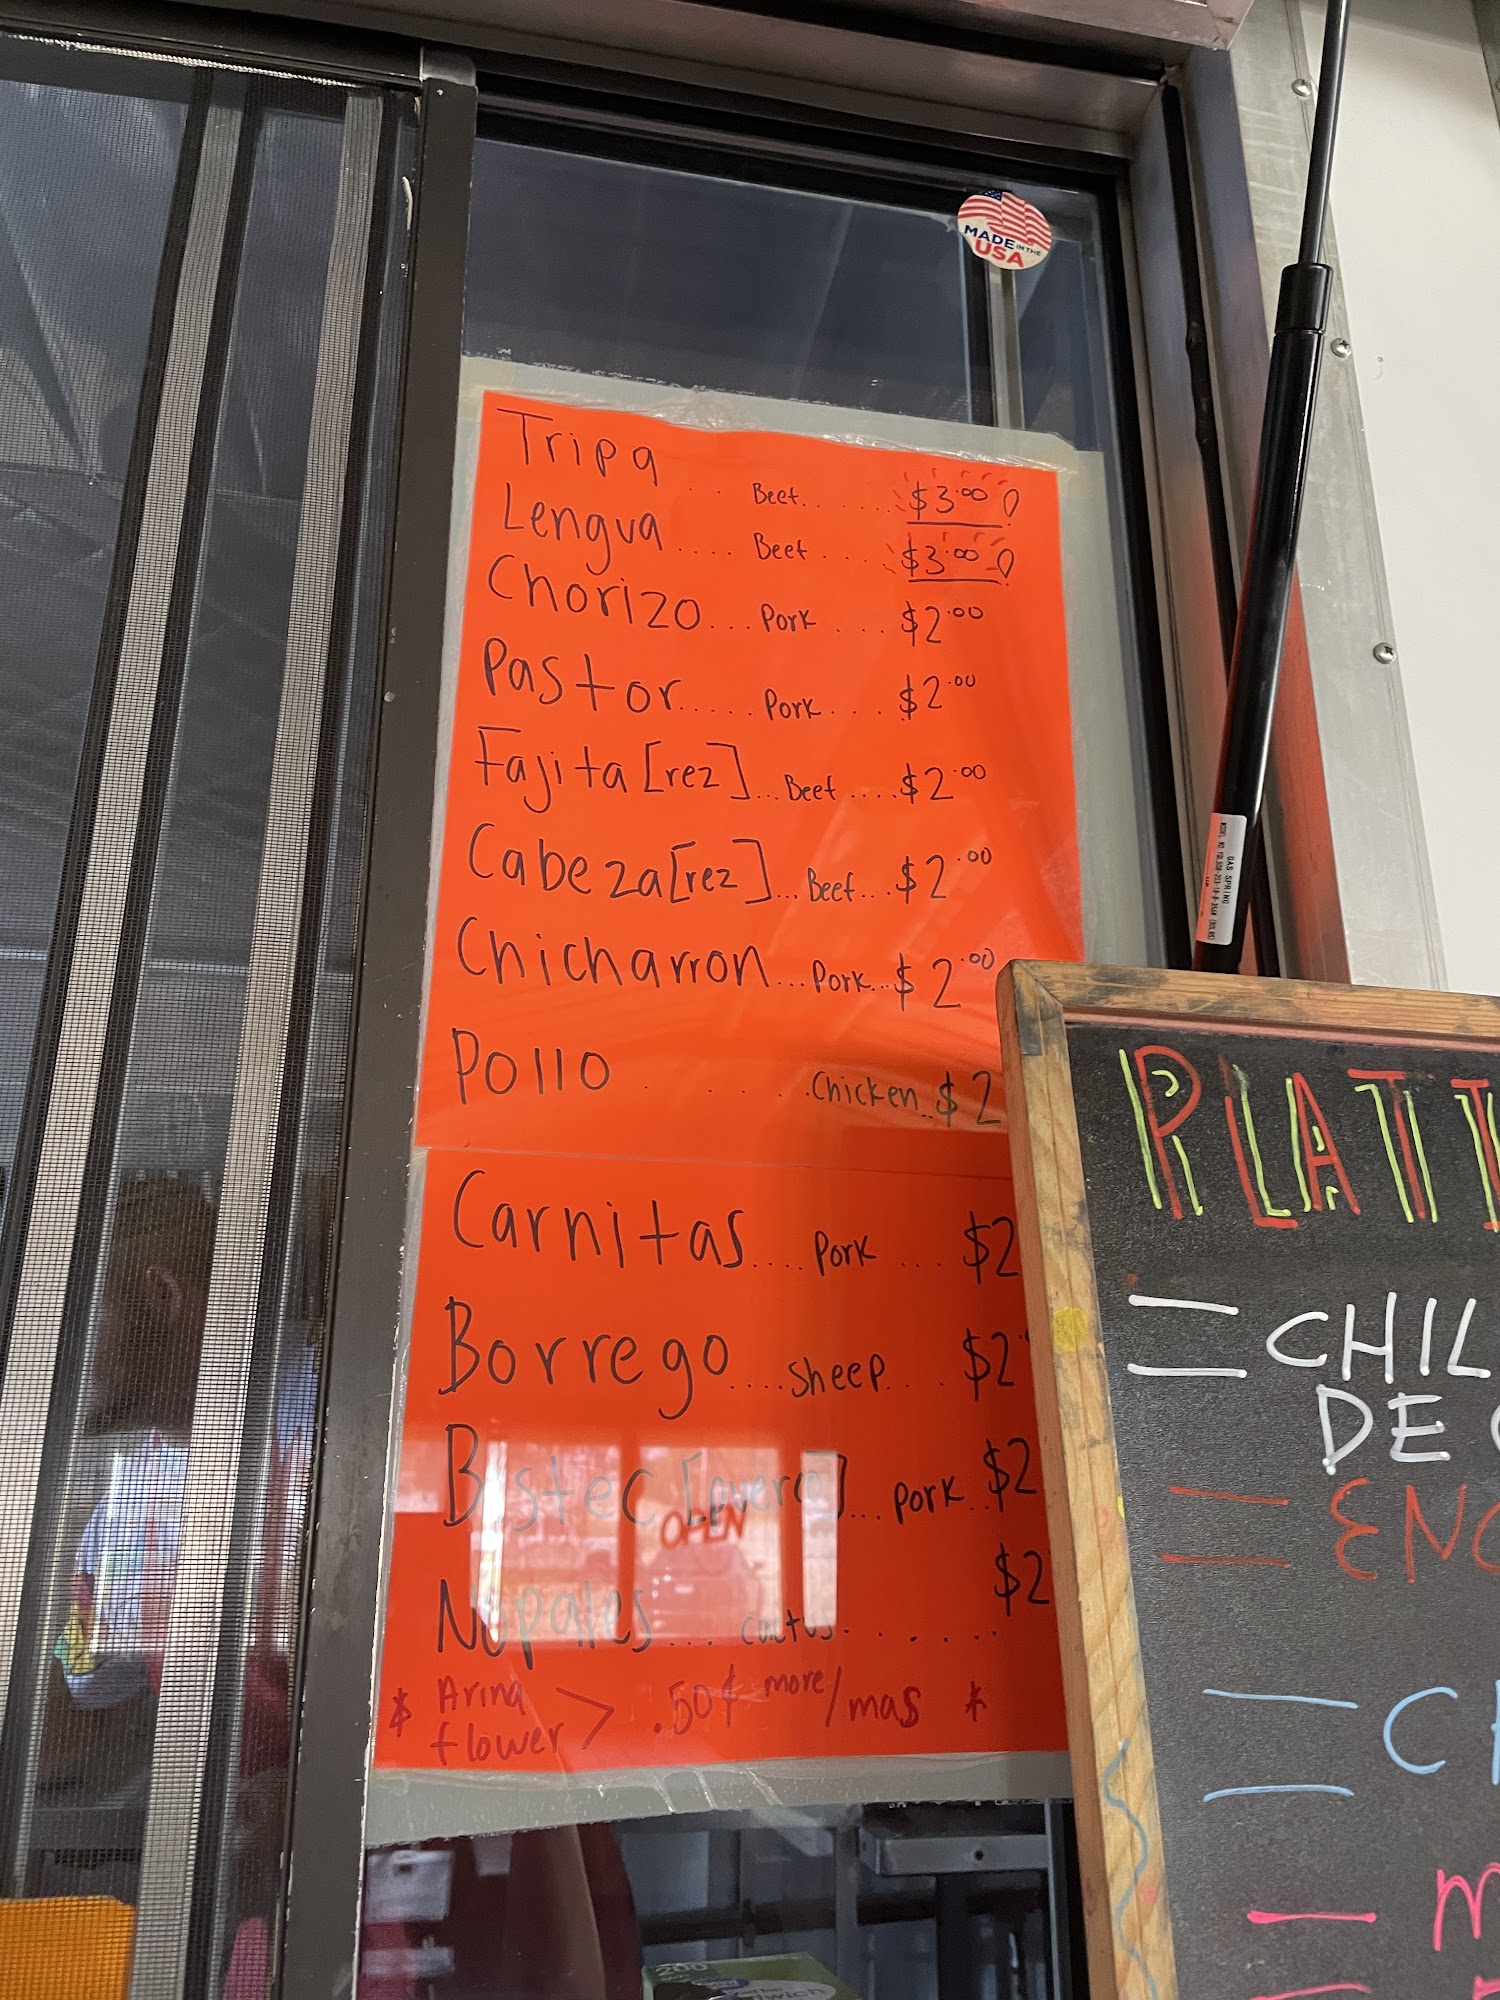 MADE IN THE
USA
Tripa .. Beef....... $3.00
Lengua .... Beef ..... $3.00
Chorizo... Pork .... $2.00
Pastor..... Pork.... $2.00
Fajita [rez]... Beef ....$2.00
Cabeza[rez]... Beef... $2.00
Chicharron...Pork..$2.00
Pollo . . . . .Chicken..$2
Carnitas.... Pork ... $2
Borrego....Sheep... . $2
Bistec [puerco]...Pork..$2
OPEN
Nopales... cactus. . . . . $2
* Arina
flower > .50¢ more/mas *
GAS SPRING
PLATI
= CHIL
DE
= ENC
= C
200